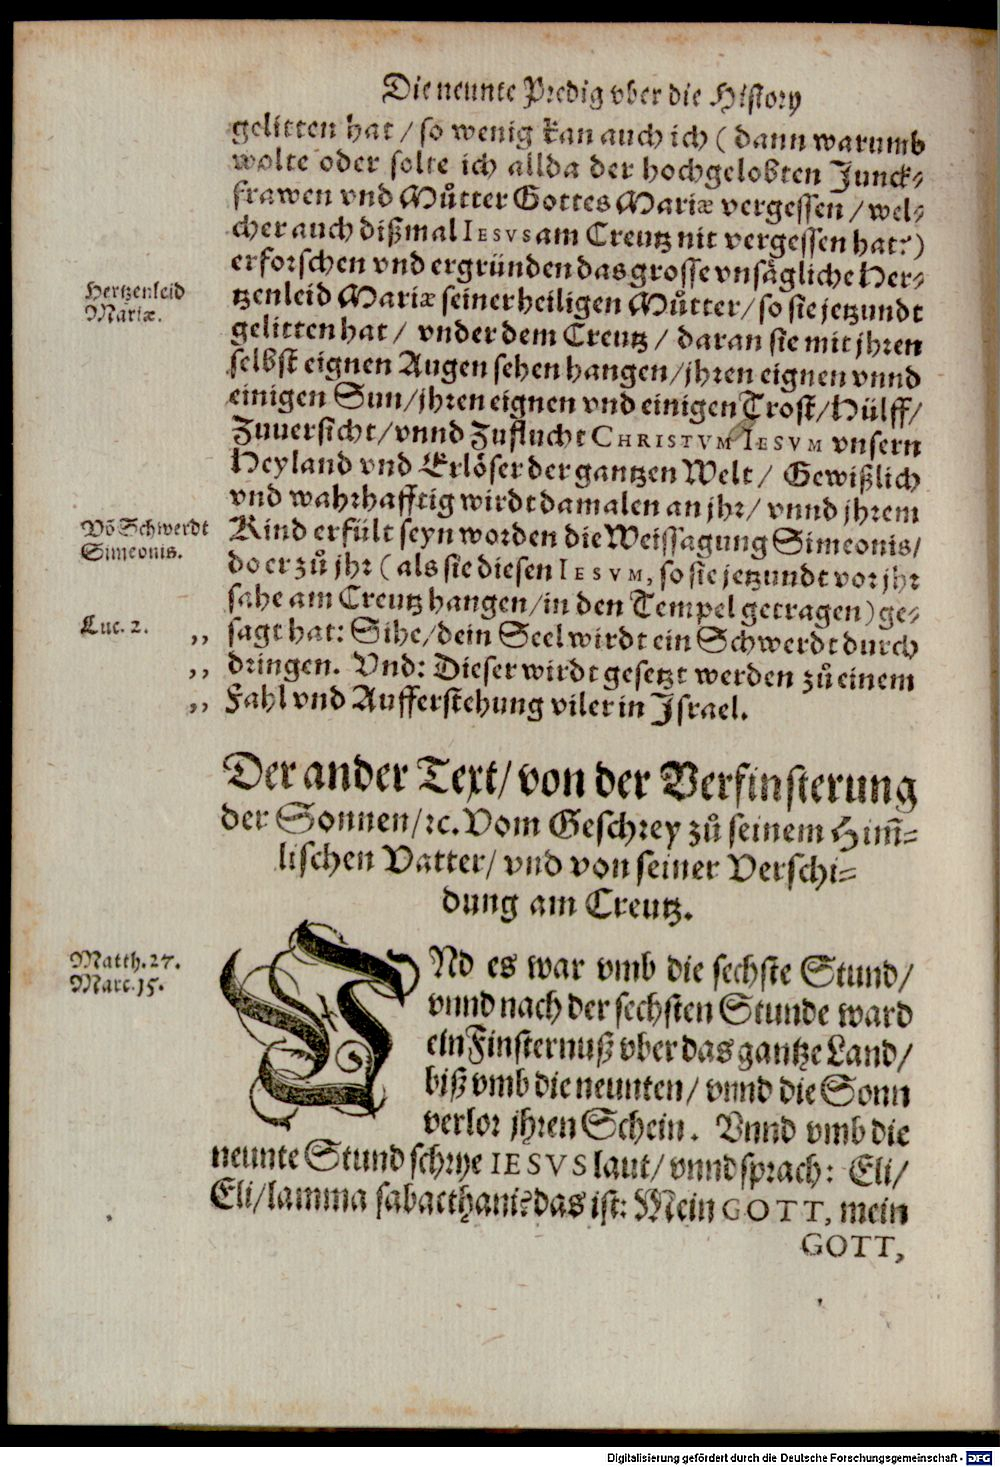 Die neunte Predig vber die History
gelitten hat / so wenig kan auch ich ( dann warumb
wolte oder solte ich allda der hochgelobten Junck⸗
frawen vnd Můtter Gottes Mariæ vergessen / wel⸗
cher auch dißmal IESVS am Creutz nit vergessen hat?)
erforschen vnd ergründen das grosse vnsägliche Her⸗
Hertzenleid
Mariæ.
tzenleid Mariæ seiner heiligen Můtter / so sie jetzundt
gelitten hat / vnder dem Creutz / daran sie mit jhren
selbst eignen Augen sehen hangen / jhren eignen vnnd
einigen Sun / jhren eignen vnd einigen Trost / Hülff /
Zuuersicht / vnnd Zuflucht CHRISTVM IESVM vnsern
Heyland vnd Erlöser der gantzen Welt / Gewißlich
vnd wahrhafftig wirdt damalen an jhr / vnnd jhrem
Võ Schwerdt
Simeonis.
Kind erfült seyn worden die Weissagung Simeonis /
do er zů jhr ( als sie diesen IESVM, so sie jetzundt vor jhr
sahe am Creutz hangen / in den Tempel getragen ) ge⸗
Luc. 2.
,, sagt hat: Sihe / dein Seel wirdt ein Schwerdt durch
,, dringen. Vnd: Dieser wirdt gesetzt werden zů einem
,, Fahl vnd Aufferstehung viler in Israel.
Der ander Text / von der Verfinsterung
der Sonnen / ꝛc. Vom Geschrey zů seinem Him̃⸗
lischen Vatter / vnd von seiner Verschi⸗
dung am Creutz.
Matth. 27.
Marc. 15.
VNd es war vmb die sechste Stund /
vnnd nach der sechsten Stunde ward
ein Finsternuß vber das gantze Land /
biß vmb die neunten / vnnd die Sonn
verlor jhren Schein. Vnnd vmb die
neunte Stund schrye IESVS laut / vnnd sprach: Eli /
Eli / lamma sabacthani? das ist: Mein GOTT, mein
GOTT,
Digitalisierung gefördert durch die Deutsche Forschungsgemeinschaft - DFG